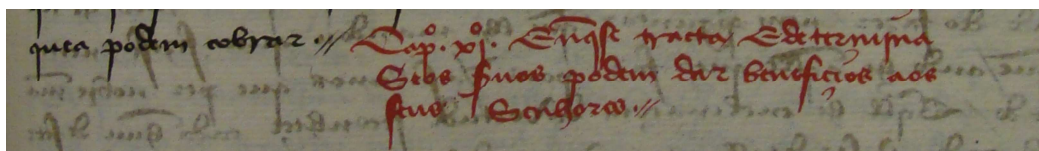 quea podem cobrar ·// Capº. xjº. Enq̃se tracta Edetermina
Seos s̃uos podem dar beneficios aos
seus Senhores ·//